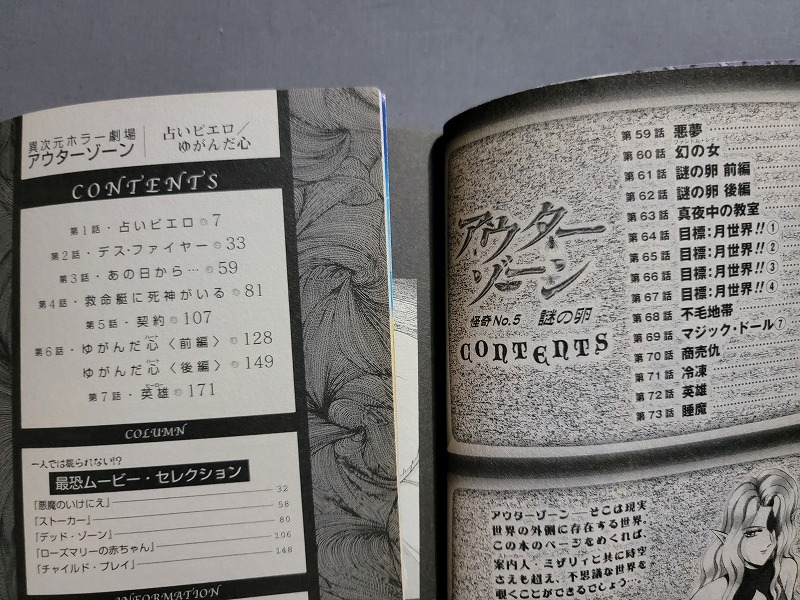 異次元ホラー劇場
アウターゾーン
占いピエロ/
ゆがんだ心
CONTENTS
第1話・占いピエロ 7
第2話・デス・ファイヤー 33
第3話・あの日から… 59
第4話・救命艇に死神がいる 81
第5話・契約 107
第6話・ゆがんだ心〈前編〉 128
ゆがんだ心〈後編〉 149
第7話・英雄 171
COLUMN
一人では観られない!?
最恐ムービー・セレクション
『悪魔のいけにえ』 32
『ストーカー』 58
『デッド・ゾーン』 80
『ローズマリーの赤ちゃん』 106
『チャイルド・プレイ』 148
INFORMATION
アウターゾーン
怪奇No.5 謎の卵
CONTENTS
第59話 悪夢
第60話 幻の女
第61話 謎の卵 前編
第62話 謎の卵 後編
第63話 真夜中の教室
第64話 目標:月世界!!①
第65話 目標:月世界!!②
第66話 目標:月世界!!③
第67話 目標:月世界!!④
第68話 不毛地帯
第69話 マジック・ドール⑦
第70話 商売仇
第71話 冷凍
第72話 英雄
第73話 睡魔
アウターゾーン──そこは現実
世界の外側に存在する世界。
この本のページをめくれば、
案内人・ミザリィと共に時空
さえも超え、不思議な世界を
覗くことができるでしょう…